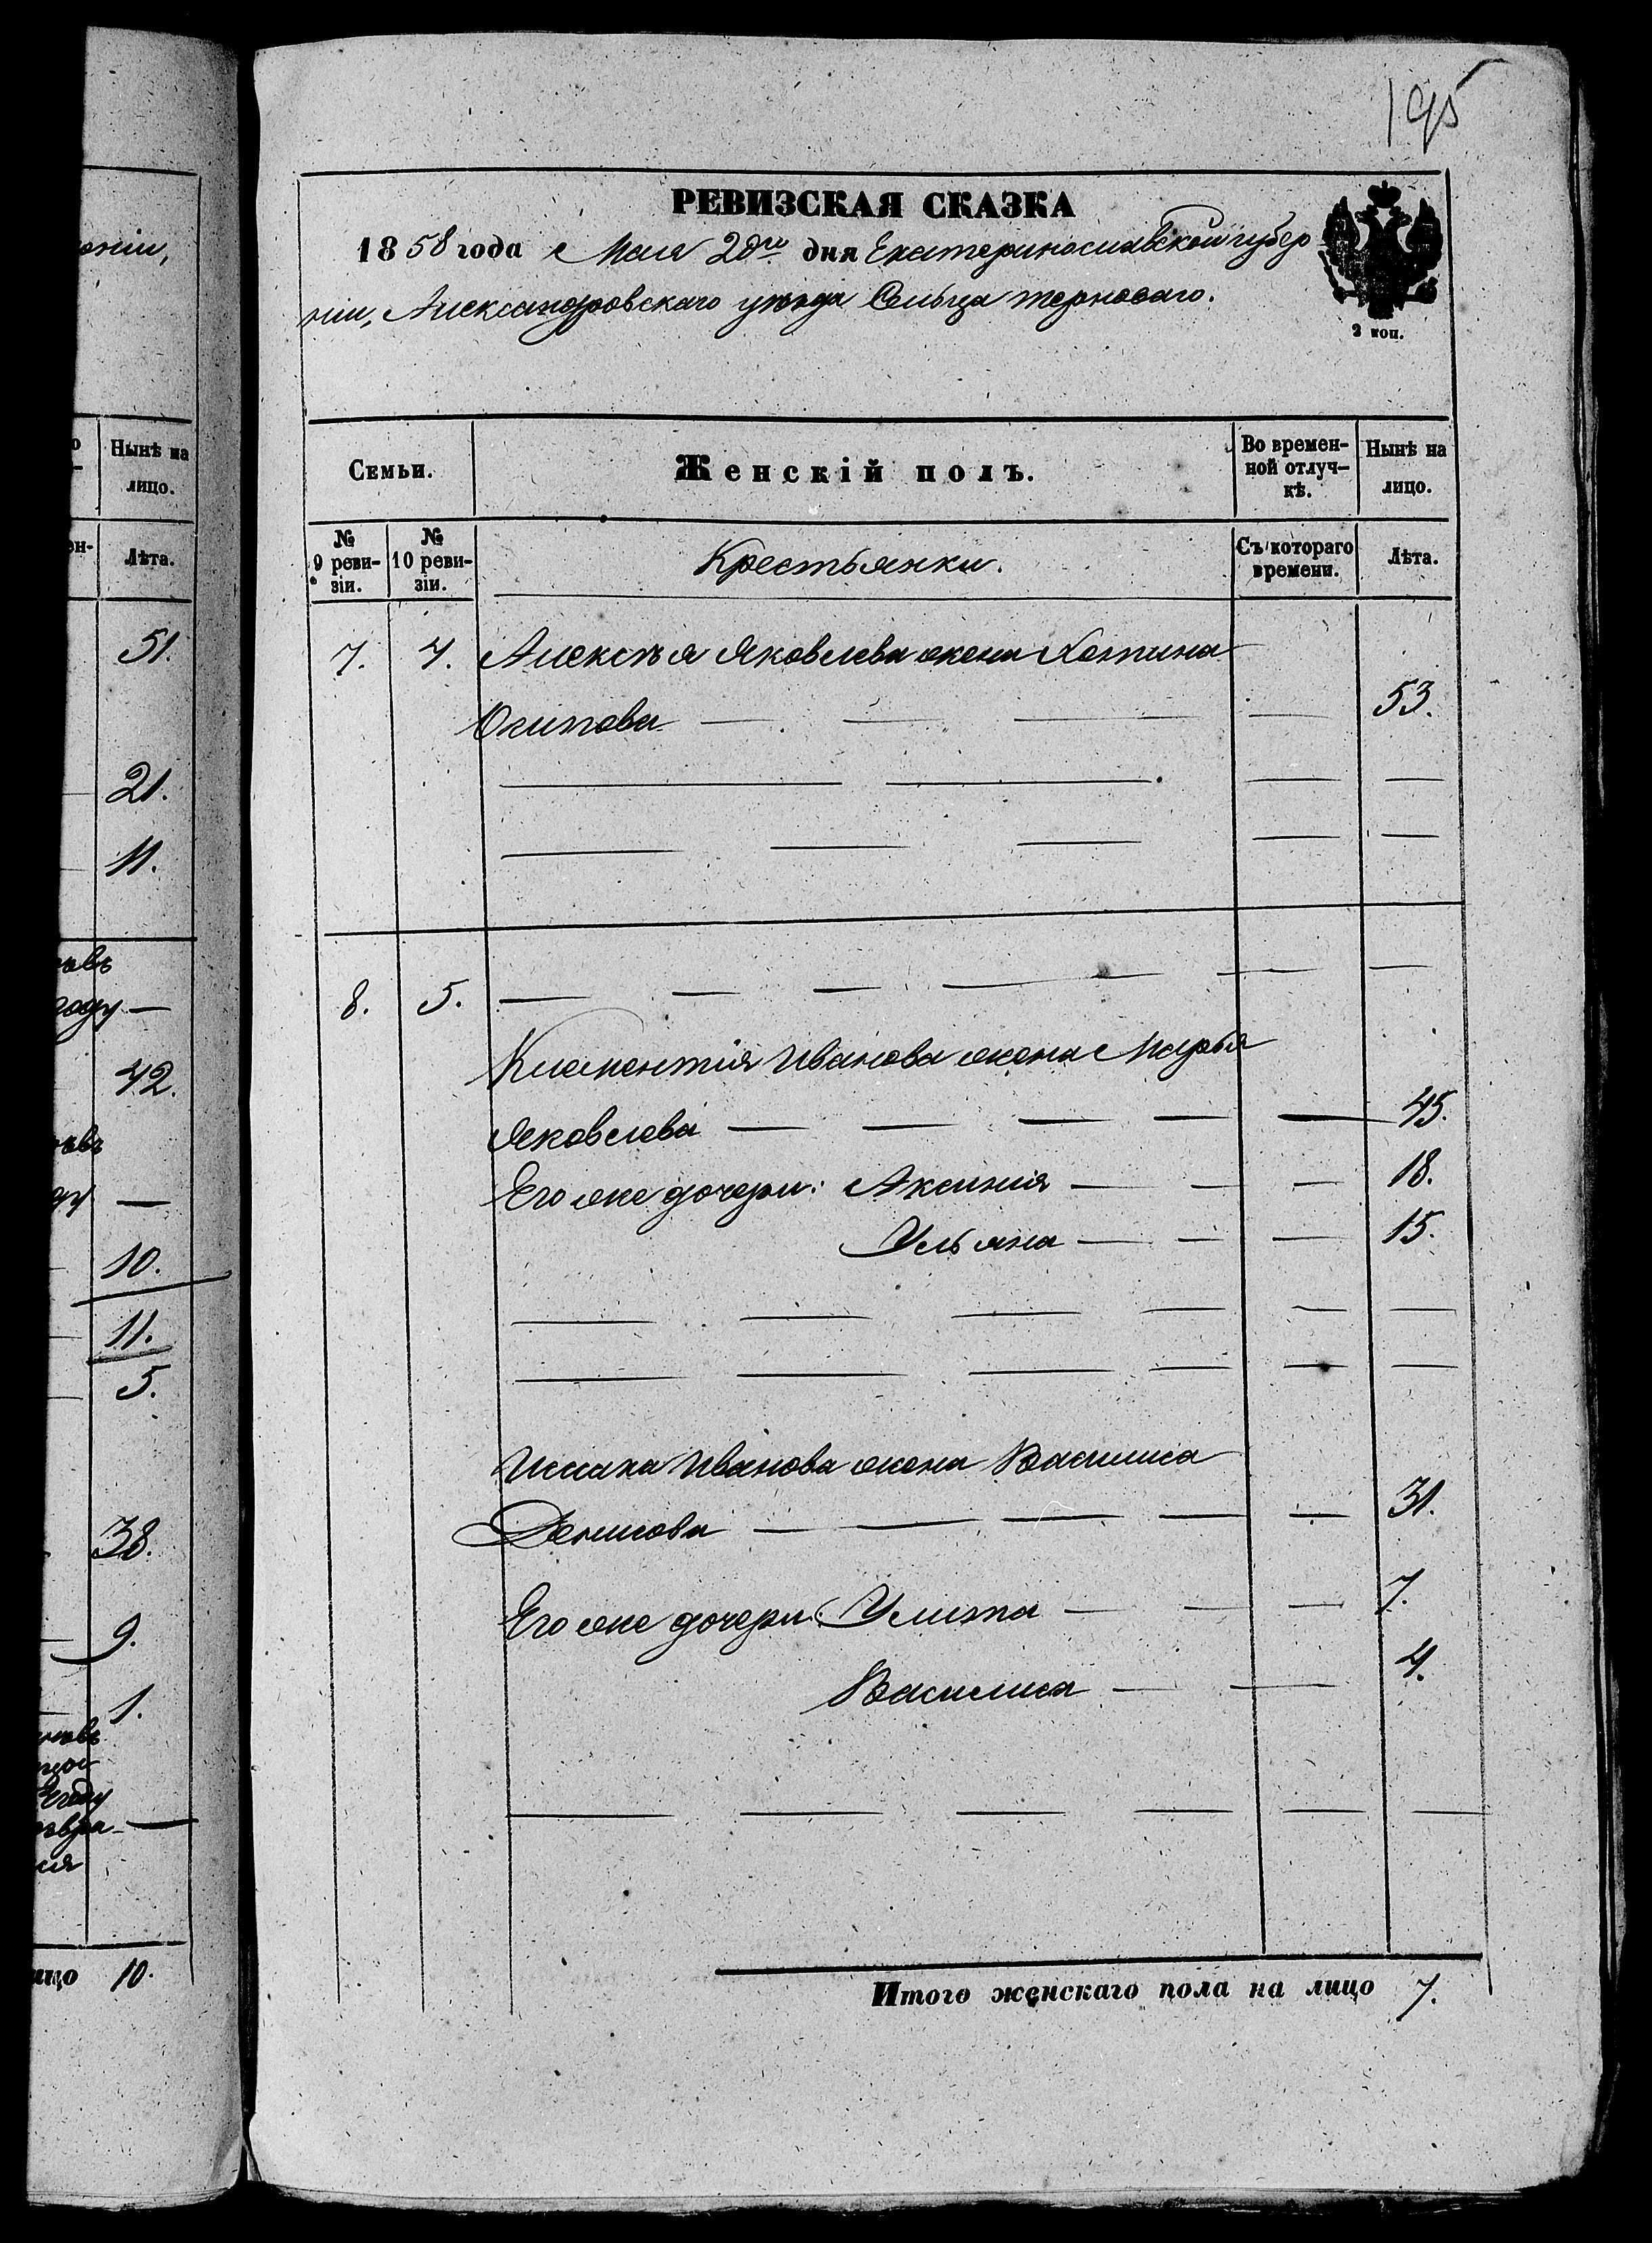 195
РЕВИЗСКАЯ СКАЗКА
1858 года Мая 2го дня Екатеринославской губер
ніи, Александровскаго уѣзда Сельца терноваго.
2 коп.
Семьи.
Женскій полъ.
Во времен-
ной отлуч-
кѣ.
Нынѣ на
лицо.
№
9 реви-
зіи.
№
10 реви-
зіи.
Крестьянки.
Съ котораго
времени.
Лѣта.
7. 4. Алексѣя Яковлева жена Хотина
Осипова — — — — 53.
8. 5. — — — —
Клементія Иванова жена Марья
Яковлева — — — — — 45.
Его же дочери: Аксинія — — — 18.
Ульяна — — — 15.
Иссака Иванова жена Василиса
Денисова — — — — — 31.
Его же дочери: Улита — — — 7.
Василиса — — 4.
Итого женскаго пола на лицо 7.
Нынѣ на
лицо.
Лѣта.
51.
21.
11.
году —
42.
10.
11.
5.
38.
9.
1.
10.